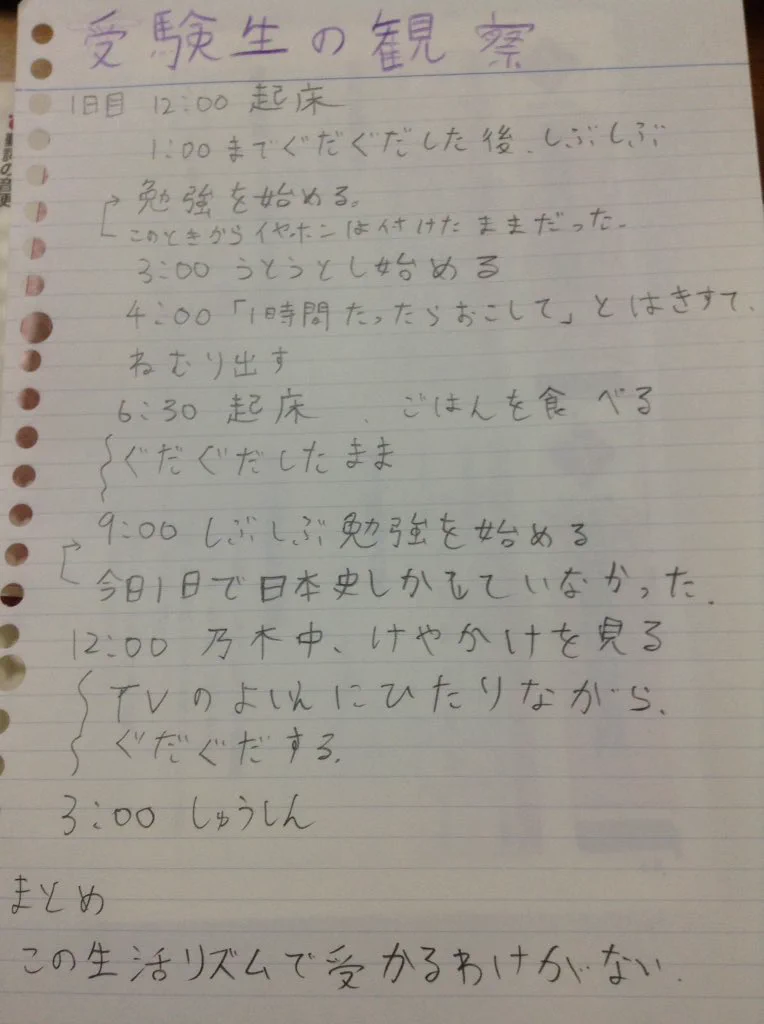 受験生の観察
1日目 12:00 起床
1:00までぐだぐだした後、しぶしぶ
勉強を始める。
このときからイヤホンは付けたままだった。
3:00 うとうとし始める
4:00 「1時間たったらおこして」とはきすて、
ねむり出す
6:30 起床 、ごはんを食べる
ぐだぐだしたまま
9:00 しぶしぶ勉強を始める
今日1日で日本史しかしていなかった.
12:00 乃木中、けやかけを見る
TVのよいんにひたりながら、
ぐだぐだする.
3:00 しゅうしん
まとめ
この生活リズムで受かるわけがない.